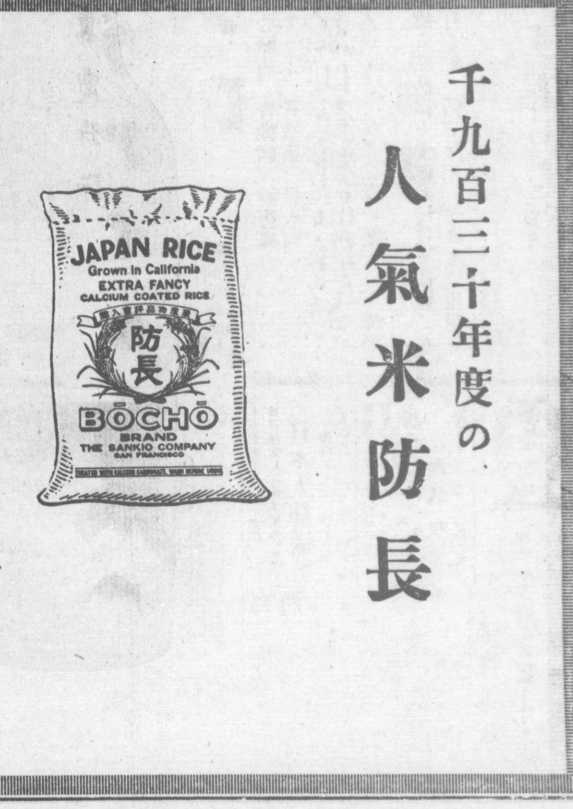 千九百三十年度の
人氣米防長
JAPAN RICE
Grown in California
EXTRA FANCY
CALCIUM COATED RICE
防長
BŌCHŌ
BRAND
THE SANKIO COMPANY
SAN FRANCISCO
TREATED WITH CALCIUM CARBONATE, WASH BEFORE USING